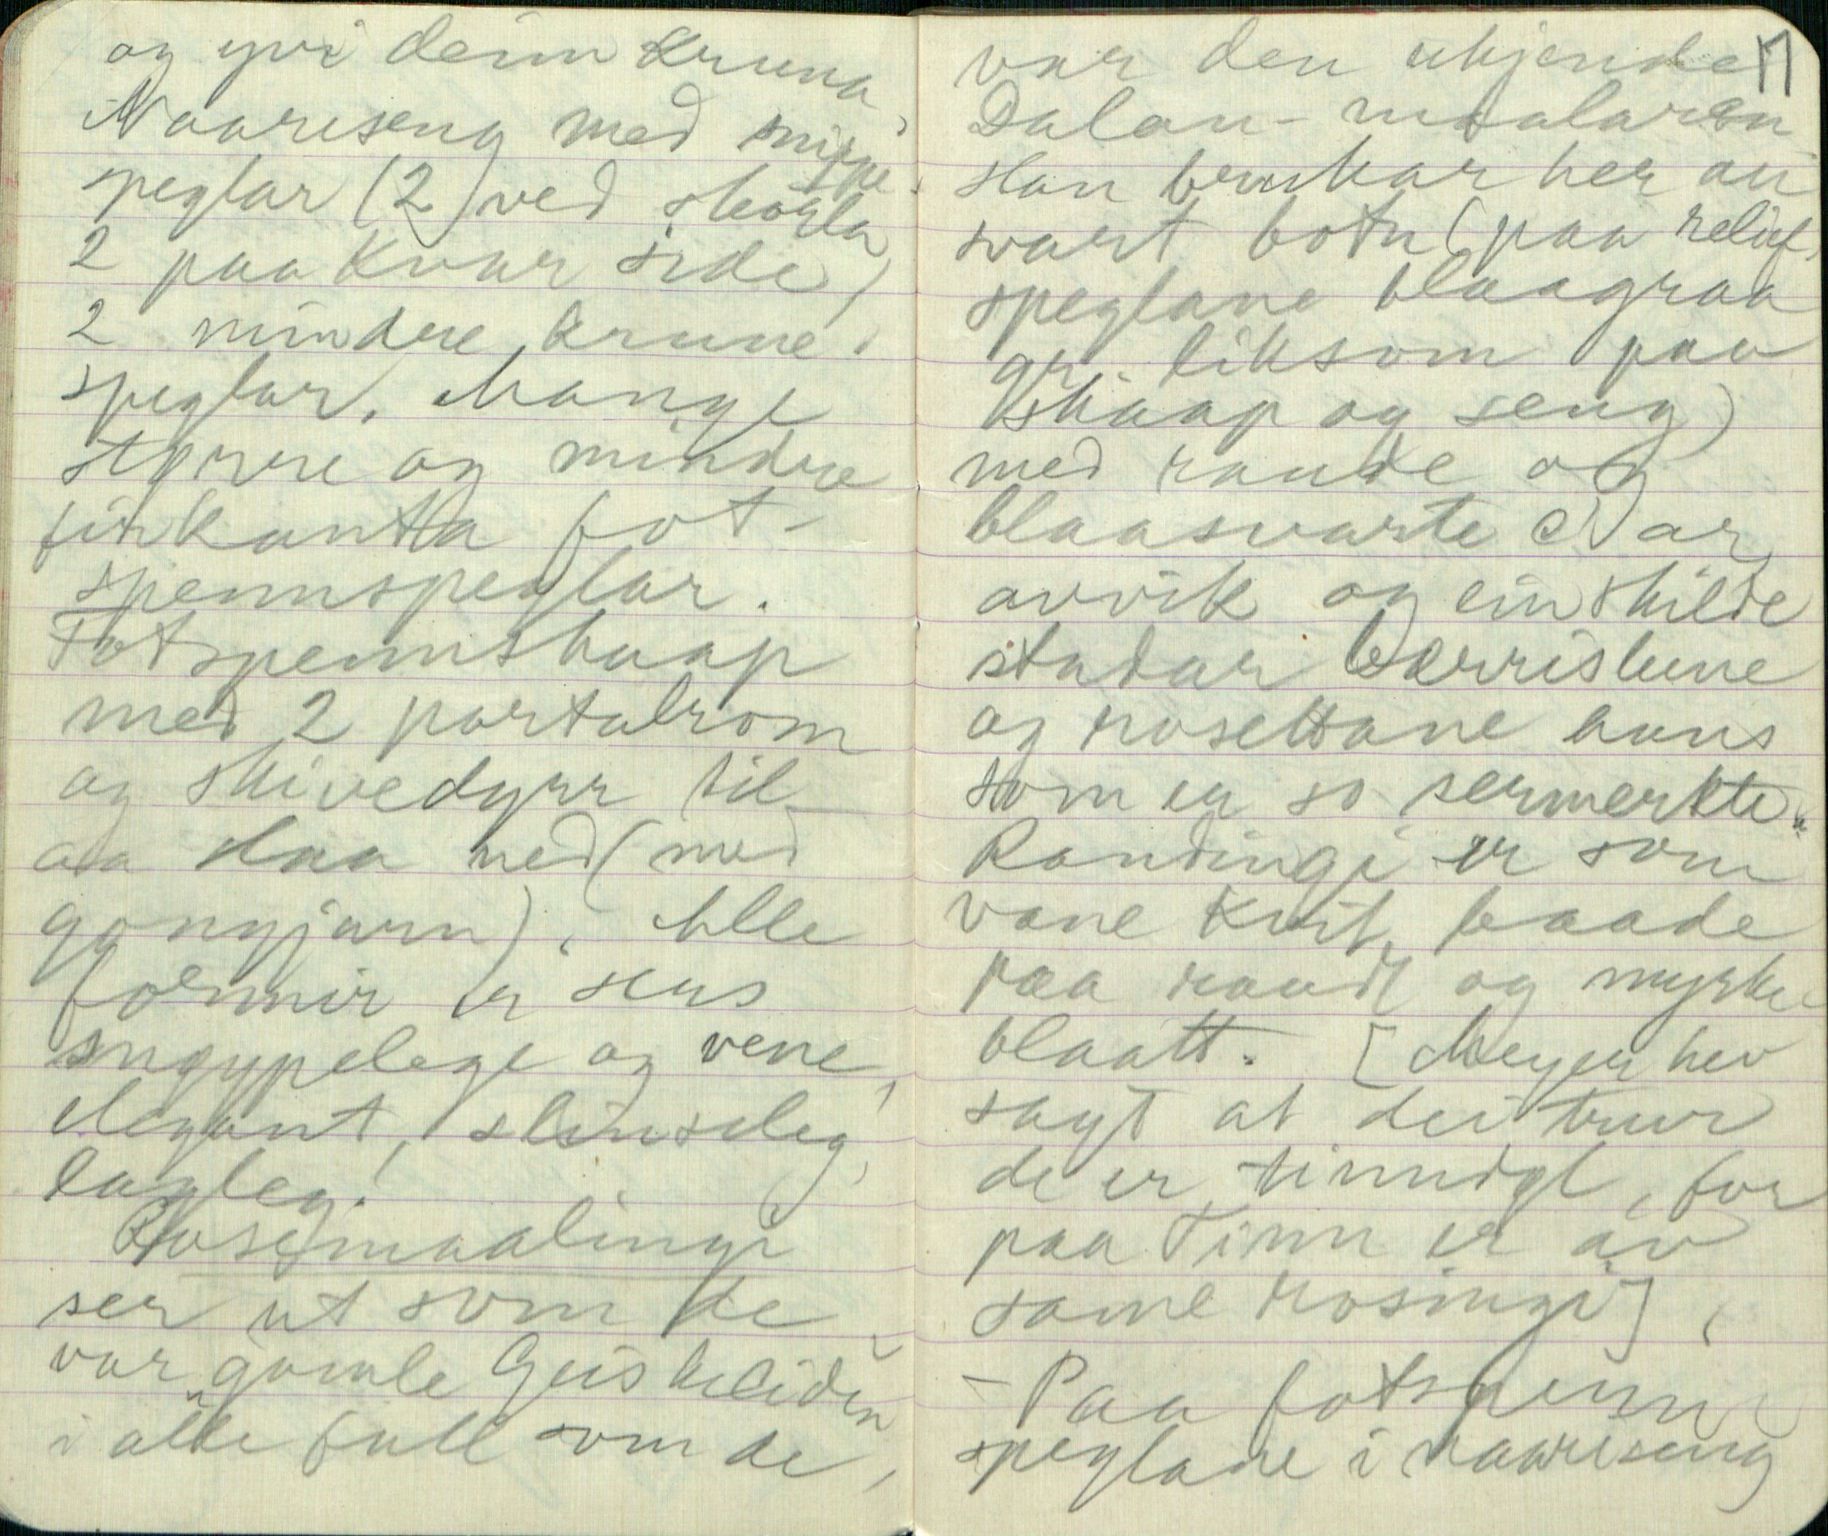 og yvi deim kruna
Naoreseng med snippe-
speglar (2) ved skorla
2 paa kvar side,
2 mindre krune-
speglar. Mange
större og mindre
firkanta fot-
spennspeglar.
Fotspennskaap
med 2 portalrom
og skivedyrr til
aa slaa ned (med
gongjarn). Alle
formir er hers
sugypelege og vene,
elegant,
lagleg!
Rosemaalingi
ser ut som de
var gamle Geiskeliden
i alle fall som de,
17
var den ukjende
Dalan-maalaren
Han brukar her ein
svart botn (paa relief-
speglane blaagraa
gr. liksom paa
skaap og seng)
med raude og
blaasvarte C ar,
avvik og einskilde
stadar
og rosettane hans
som er so sermerkte.
Randingi er som
vane kvit, baade
paa raudt og myrke
blaatt. [Meyer hev
sagt at dei truer
de er tinndøl, for
paa Tinn er av
same rosingi]
– Paa fotspenn
speglane i naareseng